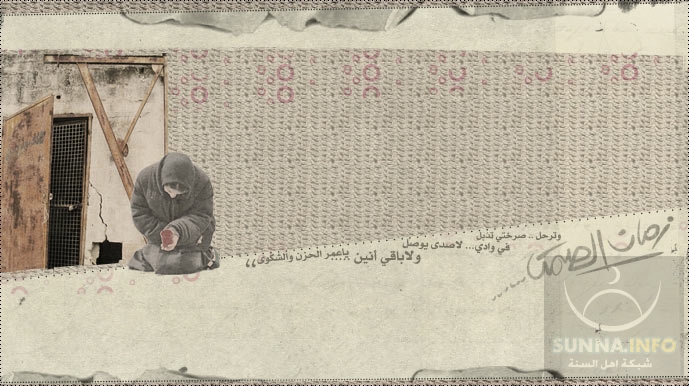 زمان الصمت
وترحل .. صرختي تذبل
في وادي... لاصدى يوصل
ولاباقي أنين .... ياعمر الحزن والشكوى،،
SUNNA.INFO
شبكة اهل السنة